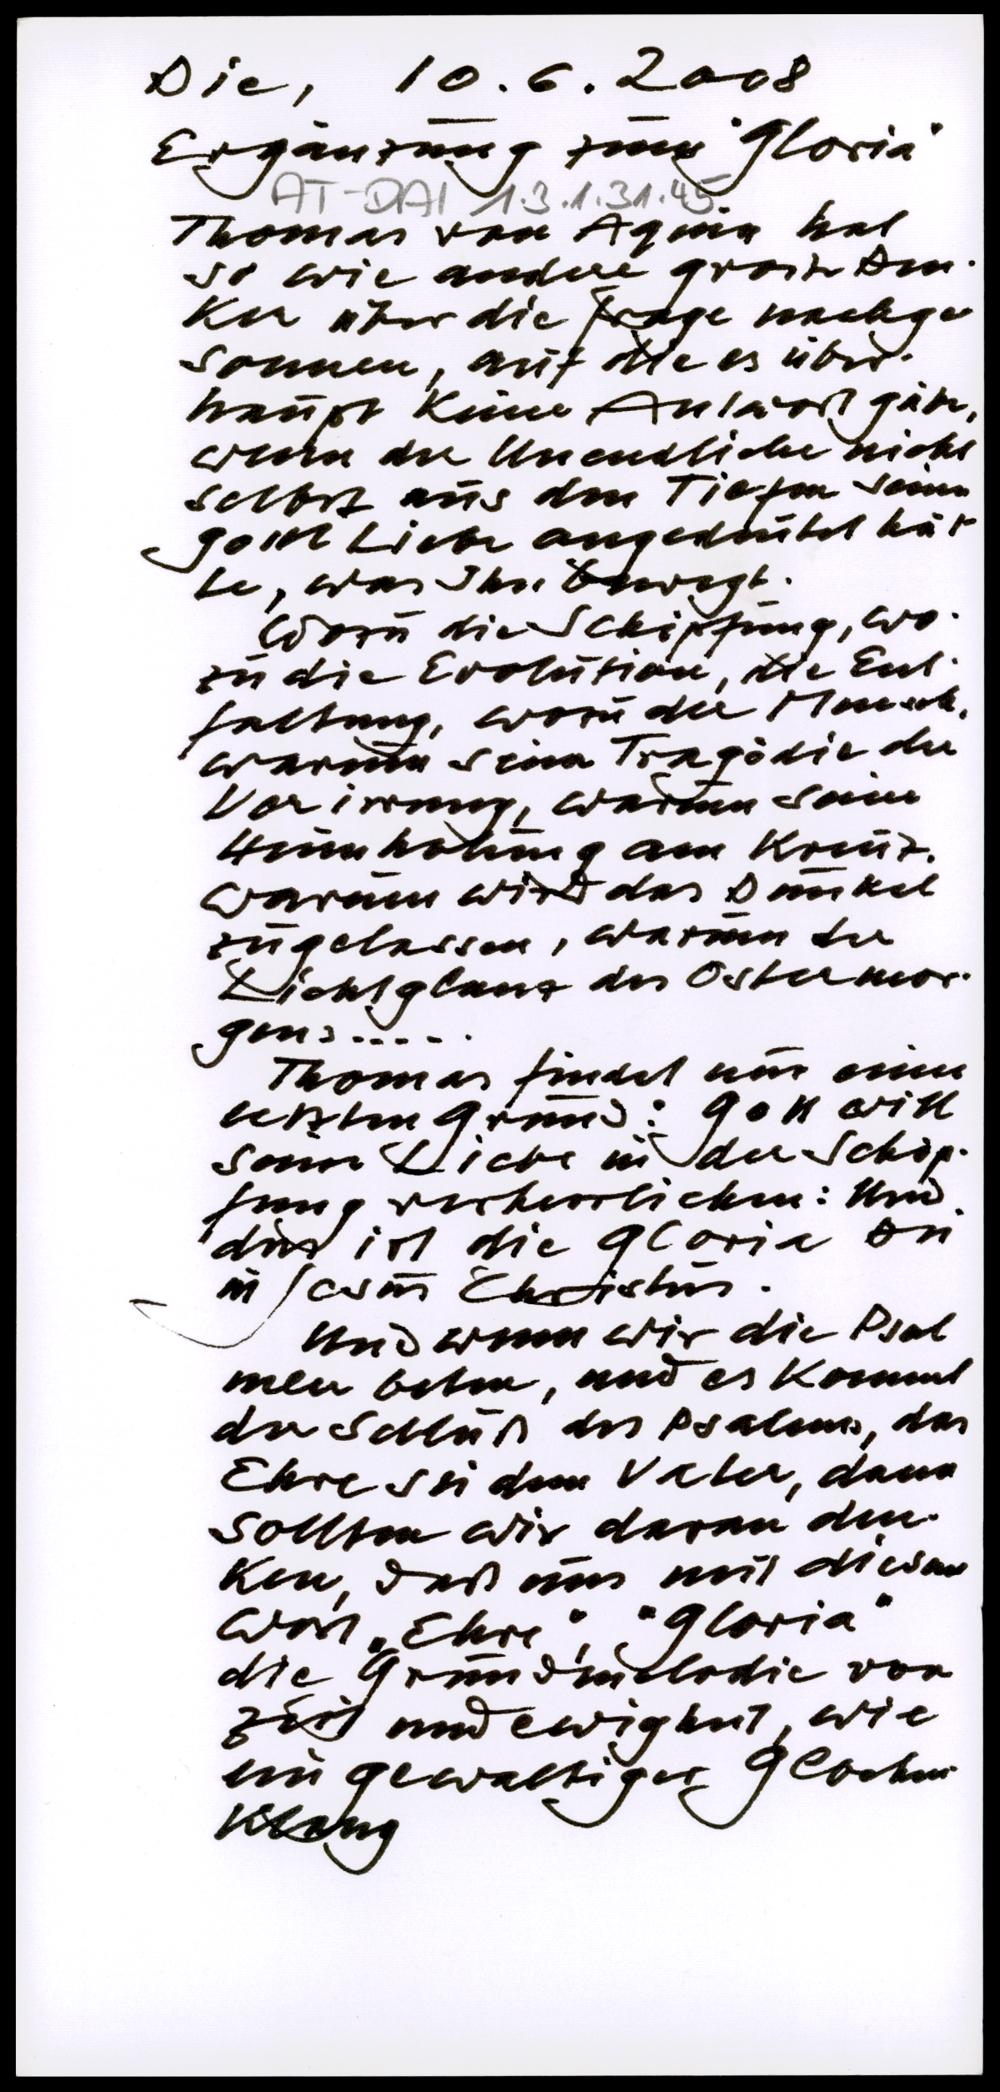 Die, 10.6.2008
Ergänzung zum "Gloria"
AT-DAI 1.3.1.31.45
Thomas von Aquin hat
so wie andere große Den-
ker über die Frage nachge
sonnen, auf die es über-
haupt keine Antwort gäbe,
wenn der Unendliche nicht
selbst aus den Tiefen seiner
göttl Liebe angedeutet hät
te, was Ihn bewegt.
Wozu die Schöpfung, wo-
zu die Evolution, die Ent-
faltung, wozu der Mensch,
warum seine Tragödie der
Verirrung, warum seine
Heimholung am Kreuz.
Warum wird das Dunkel
zugelassen, warum der
Lichtglanz des Ostermor-
gens.....
Thomas findet nur einen
letzten Grund: Gott will
seine Liebe in der Schöp-
fung verherrlichen: Und
dies ist die Gloria Dei
in Jesus Christus.
Und wenn wir die Psal
men beten, und es kommt
der Schluß des Psalms, das
Ehre sei dem Vater, dann
sollten wir daran den-
ken, daß uns mit diesem
Wort "Ehre", "Gloria"
die Grundmelodie von
Zeit und Ewigkeit, wie
ein gewaltiger Glocken
klang